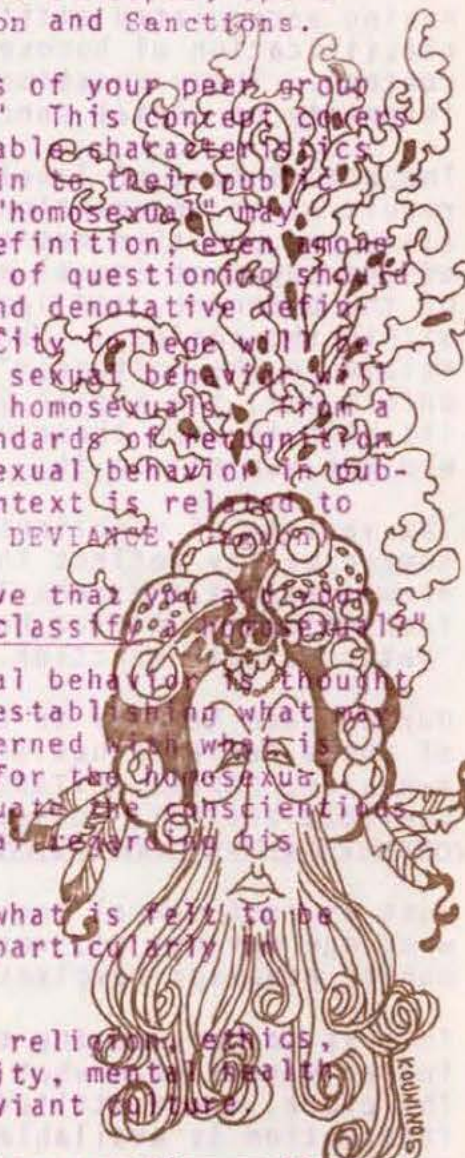 on and Sanctions.
s of your peer group
" This concept covers
able characteristics
in to their public
"homosexual" may
efinition, even among
of questioning should
nd denotative defini-
City College will be
sexual behavior will
homosexuals. From a
ndards of recognition
exual behavior in pub-
ntext is related to
DEVIANCE,
ve that you and your
classify a homosexual?"
al behavior is thought
establishing what may
erned with what is
for the homosexual
uate the conscientious
al regarding his
what is felt to be
particularly in
religion, ethics,
ity, mental health
viant culture.
KOUNINOS